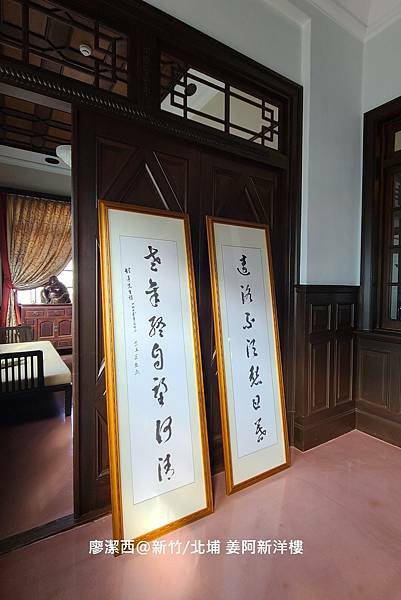 遠路不須愁日暮
老年終自望河清
廖潔西@新竹/北埔 姜阿新洋樓